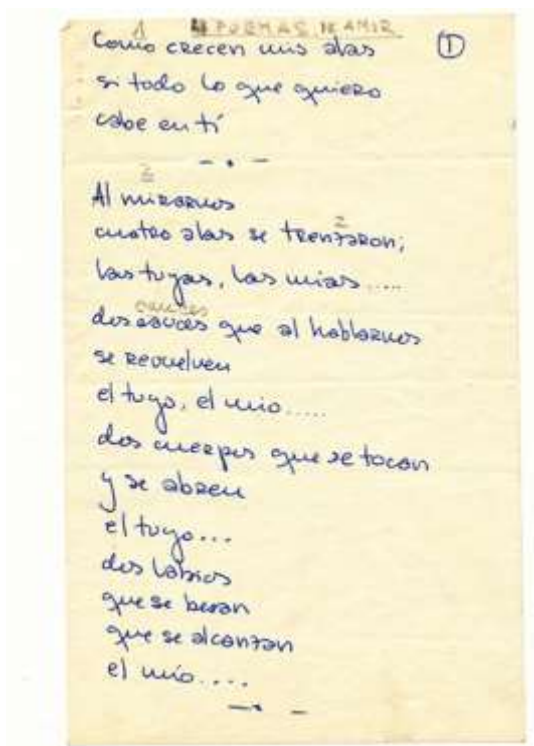 4 POEMAS DE AMOR
1
Como crecen mis alas
si todo lo que quiero
cabe en tí
①
2
Al mirarnos
cuatro alas se trenzaron;
z
las tuyas, las mias.....
cauces
dos que al hablarnos
se revuelven
el tuyo, el mio.....
dos cuerpos que se tocan
y se abren
el tuyo...
dos labios
que se besan
que se alcanzan
el mío....